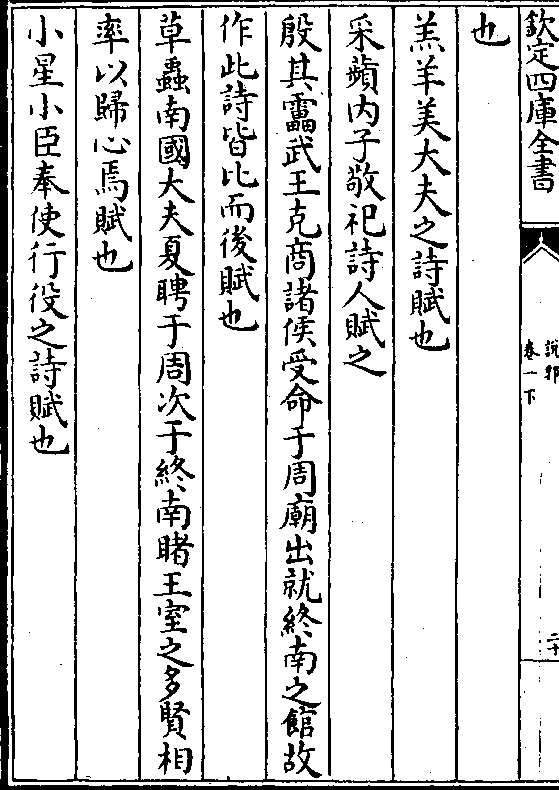 欽定四庫全書
說郛
卷一下
二十
也
羔羊美大夫之詩賦也
采蘋内子敬祀詩人賦之
殷其靁武王克商諸侯受命于周廟出就終南之館故
作此詩皆比而後賦也
草蟲南國大夫夏聘于周次于終南睹王室之多賢相
率以歸心焉賦也
小星小臣奉使行役之詩賦也